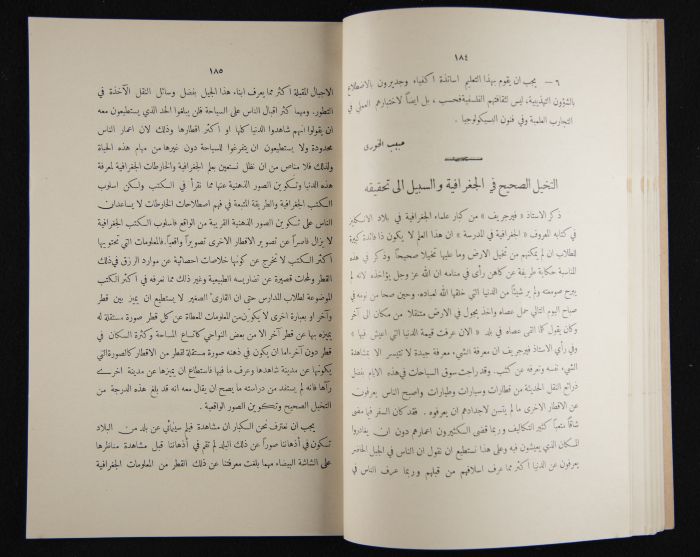 ١٨٤
٦ — يجب ان يقوم بهذا التعليم اساتذة اكفياء وجديرون بالاضطلاع
بالشؤون التهذيبية، ليس لثقافتهم الفلسفية فحسب، بل ايضاً لاختبارهم العملي في
التجارب العلمية وفي فنون السيكولوجيا.
حبيب الخوري
التخيل الصحيح في الجغرافية والسبيل الى تحقيقه
ذكر الاستاذ « فيرجريف » من كبار علماء الجغرافية في بلاد الانكليز
في كتابه المعروف « الجغرافية في المدرسة » ان هذا العلم لا يكون ذا فائدة كبيرة
للطلاب ان لم يمكنهم من تخيل الارض وما عليها تخيلا صحيحاً وذكر في هذه
المناسبة حكاية طريفة عن كاهن رأى في منامه ان الله عز وجل يؤاخذه لانه لم
يبرح صومعته ولم ير شيئاً من الدنيا التي خلقها الله لعباده، وحين صحا من نومه في
صباح اليوم التالي حمل عصاه واخذ يجول في الارض متنقلا من مكان الى آخر
وكان يقول كلما القى عصاه في بلد « الان عرفت قيمة الدنيا التي اعيش فيها »
وفي رأي الاستاذ فيرجريف ان معرفة الشيء معرفة جيدة لا تتيسر الا بمشاهدة
الشيء نفسه وتعرفه عن كثب. وقد راجت سوق السياحات في هذه الايام بفضل
ذرائع النقل الحديثة من قطارات وسيارات وطيارات واصبح الناس يعرفون
عن الاقطار الاخرى ما لم يتسن لاجدادهم ان يعرفوه. فقد كان السفر فيما مضى
شاقاً متعباً كثير التكاليف وربما قضى الكثيرون اعمارهم دون ان يغادروا
المكان الذي يعيشون فيه وعلى هذا نستطيع ان نقول ان الناس في الجيل الحاضر
يعرفون عن الدنيا اكثر مما عرف اسلافهم من قبلهم وربما عرف الناس في
١٨٥
الاجيال المقبلة اكثر مما يعرف ابناء هذا الجيل بفضل وسائل النقل الآخذة في
التطور. ومهما كثر اقبال الناس على السياحة فلن يبلغوا الحد الذي يستطيعون معه
ان يقولوا انهم شاهدوا الدنيا كلها او اكثر اقطارها وذلك لان اعمار الناس
محدودة ولا يستطيعون ان يتفرغوا للسياحة دون غيرها من مهام هذه الحياة
ولذلك فلا مناص من ان نظل نستعين بعلم الجغرافية والخارطات الجغرافية لمعرفة
هذه الدنيا وتكوين الصور الذهنية عنها مما نقرأ في الكتب ولكن اسلوب
الكتب الجغرافية والطريقة المتبعة في فهم اصطلاحات الخارطات لا يساعدان
الناس على تكوين الصور الذهنية القريبة من الواقع فاسلوب الكتب الجغرافية
لا يزال قاصراً عن تصوير الاقطار الاخرى تصويراً واقعياً. فالمعلومات التي تحتويها
اكثر الكتب لا تخرج عن كونها خلاصات احصائية عن موارد الرزق في ذلك
القطر ولمحات قصيرة عن تضاريسه الطبيعية وغير ذلك مما نعرفه في اكثر الكتب
الموضوعة لطلاب المدارس حتى ان القارئ الصغير لا يستطيع ان يميز بين قطر
وآخر او بعبارة اخرى لا يكون من المعلومات المعطاة عن كل قطر صورة مستقلة له
يميزه بها عن قطر آخر الا من بعض النواحي كاتساع المساحة وكثرة السكان في
قطر دون آخر. اما ان يكون في ذهنه صورة مستقلة لقطر من الاقطار كالصورة التي
يكونها عن مدينة شاهدها وعرف ما فيها فاستطاع ان يميزها عن مدينة اخرى
رآها فانه لم يستفد من دراسته ما يصح ان يقال معه انه قد بلغ هذه الدرجة من
التخيل الصحيح وتكوين الصور الواقعية.
يجب ان نعترف نحن الكبار ان مشاهدة فيلم سينمائي عن بلد من البلاد
تكون في أذهاننا صوراً عن ذلك البلد لم تقم في أذهاننا قبل مشاهدة مناظرها
على الشاشة البيضاء مهما بلغت معرفتنا عن ذلك القطر من المعلومات الجغرافية